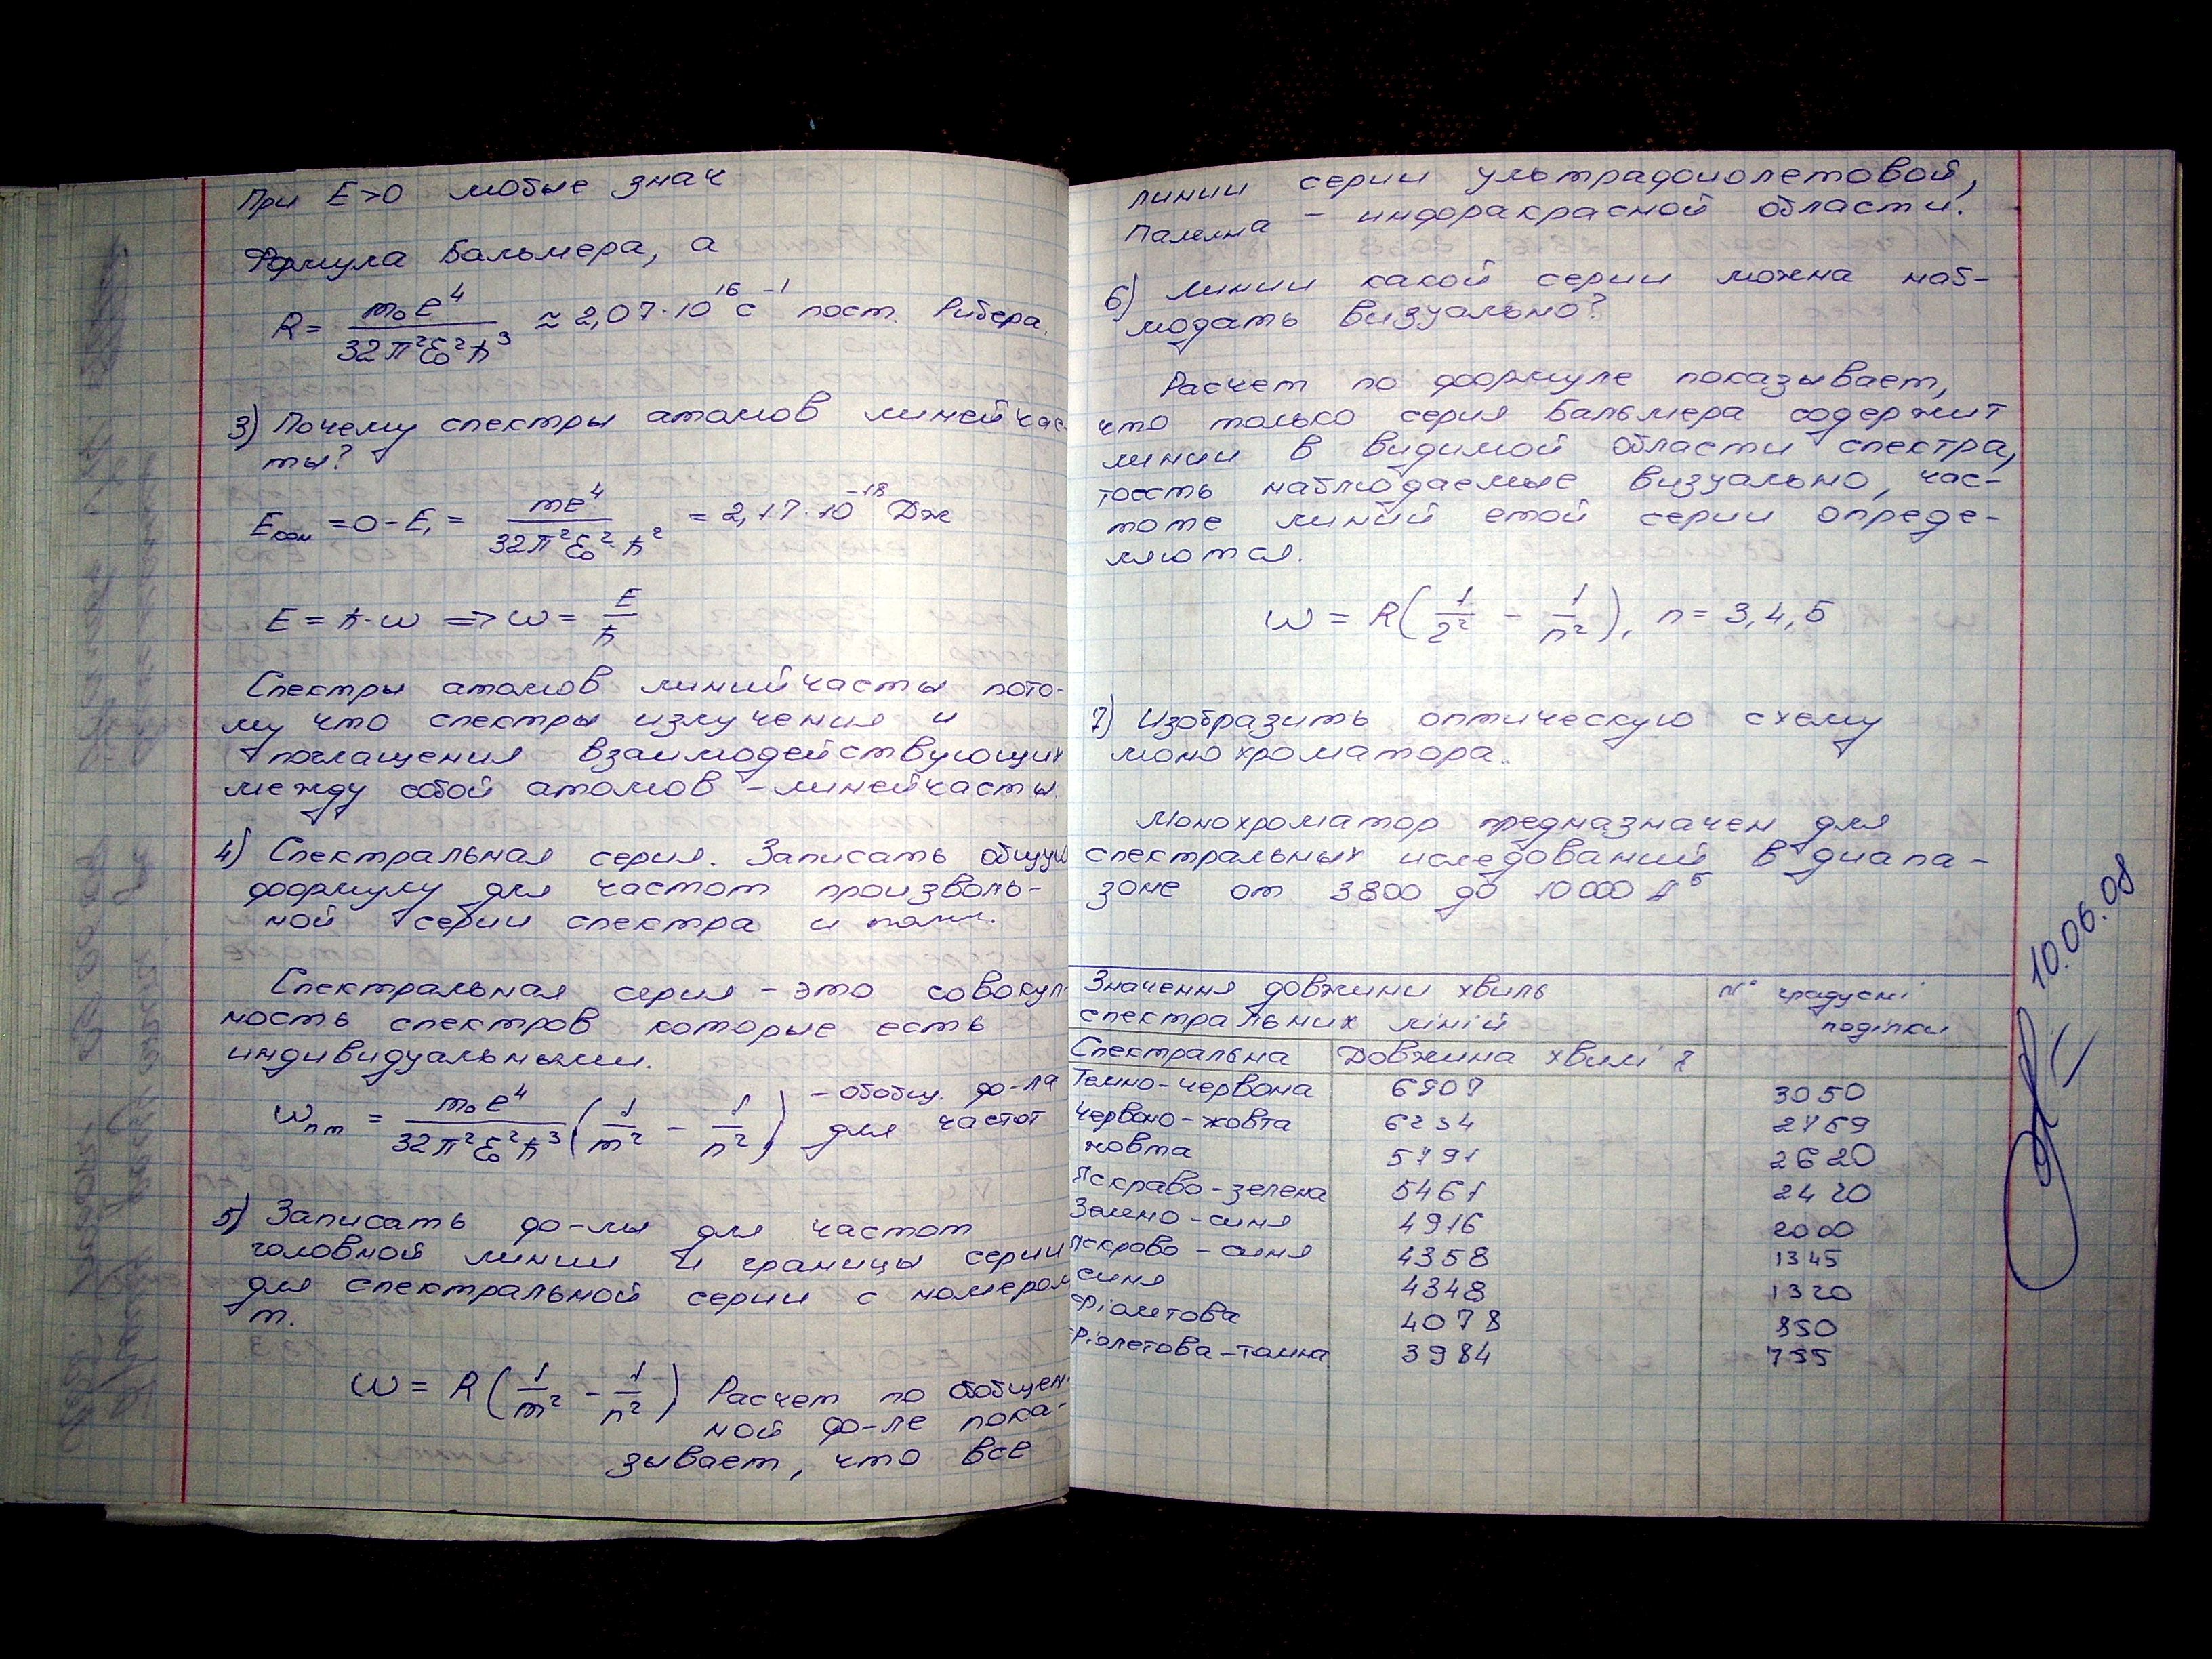 При E>0 любые знач
Формула Бальмера, а
R = m₀e⁴ / 32π²ε₀²ħ³ ≈ 2,07·10¹⁶ с⁻¹ пост. Ридбера.
3) Почему спектры атомов линейчас-
ты?
Eион = 0 - E₁ = me⁴ / 32π²ε₀²·ħ² = 2,17·10⁻¹⁸ Дж
E = ħ·ω => ω = E/ħ
Спектры атомов линийчасты пото-
му что спектры излучения и
поглащения взаимодействующих
между собой атомов - линейчасты.
4) Спектральная серия. Записать общую
формулу для частот произволь-
ной серии спектра и
Спектральная серия - это совокуп-
ность спектров которые есть
индивидуальными.
ωnm = m₀e⁴ / 32π²ε₀²ħ³ (1/m² - 1/n²) - обобщ. ф-ла
для частот
5) Записать ф-лы для частот
головной линии и границы серии
для спектральной серии с номером
m.
ω = R (1/m² - 1/n²) Расчет по обобщен-
ной ф-ле пока-
зывает, что все
линии серии ультрафиолетовой,
Пашена - инфоракрасной области.
6) Линии какой серии можна наб-
людать визуально?
Расчет по формуле показывает,
что только серия Бальмера содержит
линии в видимой области спектра,
тоесть наблюдаемые визуально, час-
тоте линий етой серии опреде-
ляются.
ω = R(1/2² - 1/n²), n = 3,4,5
7) Изобразить оптическую схему
монохроматора.
Монохроматор предназначен для
спектральных иследований в диапа-
зоне от 3800 до 10000
Значення довжини хвиль № градусні
спектральних ліній поділки
Спектральна Довжина хвилі
Темно-червона 6907 3050
Червоно-жовта 6234 2769
жовта 5791 2620
Яскраво-зелена 5461 2420
Зелено-синя 4916 2000
Яскраво-синя 4358 1345
синя 4348 1320
Фіолетова 4078 850
Фіолетова-тамна 3984 755
10.06.08